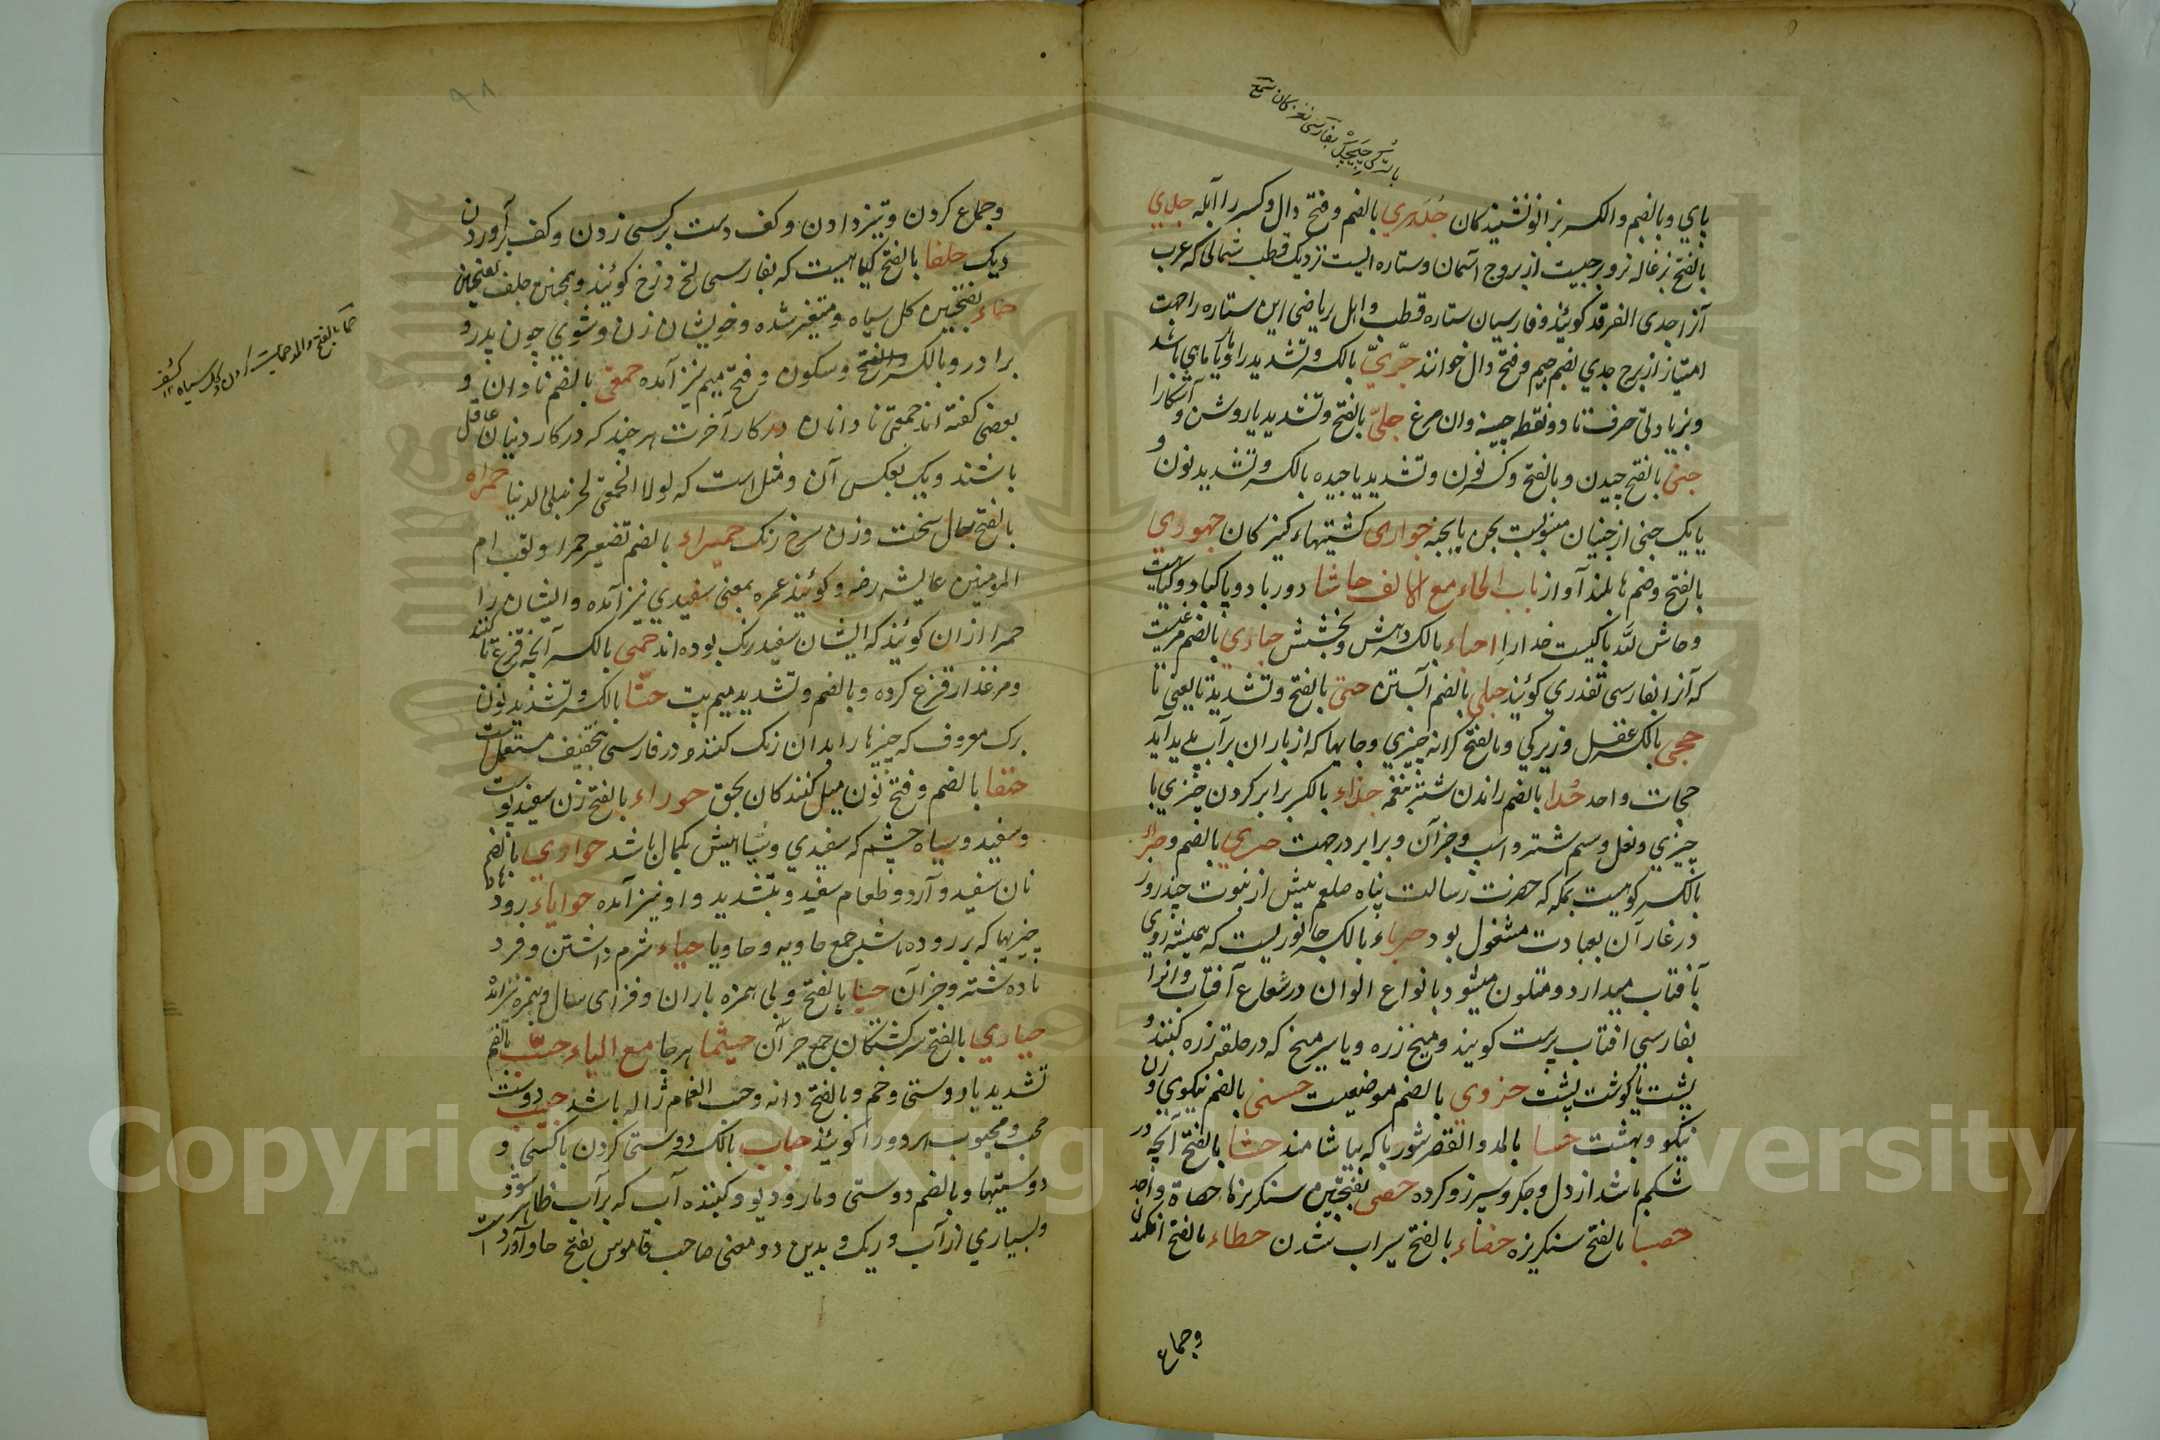 بالترکی چیچک بفارسی نغزکان
بای وبالضم والکسر بزانو نشینندکان جُدَرِي بالضم وفتح دال وکسر را آبله جدي
بالفتح بزغاله نر وبرجیست از بروج آسمان وستاره ایست نزدیک قطب شمالی که عرب
آنرا جدی الفرقد کویند وفارسیان ستاره قطب واهل ریاضی این ستاره را جهت
امتیاز از برج جدي بضم جیم وفتح دال خوانند جرّيّ بالکسر وتشدید را ویا ماهی باشد
وبزیادتی حرف تا دو نقطه چینه دان مرغ جليّ بالفتح وتشدید یا روشن و آشکارا
جنی بالفتح چیدن وبالفتح وکسر نون وتشدید یا چیده بالکسر وتشدید نون و
یا یک جنی از جنیان منسوبست بجن یا بجنه جواري کشتیها وکنیزکان جهوري
بالفتح وضم ها بلند آواز باب الحاء مع الالف حاشا دور باد و پاکباد وکیاهیست
وحاش لله پاکیست خدایرا احباء بالکسر دهش وبخشش حباري بالضم مرغیست
که آنرا بفارسی تغدري کویند حبلی بالضم آبستن حتی بالفتح وتشدید تا یعنی تا
حجی بالکسر عقل وزیرکی وبالفتح کرانه چیزي وجایها که از باران بر آب پدید آید
حجات واحد حُدا بالضم راندن شتر بنغمه حذاء بالکسر برابر کردن چیزي با
چیزي ونعل وسم شتر واسب وجز آن وبرابر درجهت حري بالضم و حراء
بالکسر کوهیست بمکه که حضرت رسالت پناه صلعم پیش از نبوت چند روز
در غار آن بعبادت مشغول بود حرباء بالکسر جانوریست که همیشه روی
بآفتاب میدارد ومتلون میشود بانواع الوان در شعاع آفتاب وانرا
بفارسی افتاب پرست کویند ومیخ زره ویا سر میخ که در حلقه زره کنند و
پشت یا کوشت پشت حزوي بالضم موضعیست حسنی بالضم نیکوي و زن
نیکو وبهشت حسا بالمد والقصر شوربا که بیاشامند حشا بالفتح آنچه در
شکم باشد از دل وجکر وسپرز وکرده حصی بفتحتین سنکریزها حصاة واحد
حصبا بالفتح سنکریزه حفاء بالفتح سیراب شدن حطاء بالفتح افکندن
وجماع
وجماع کردن وتیز دادن وکف دست بر کسی زدن وکف برآوردن
دیک حلفا بالفتح کیاهیست که بفارسی لخ ودخ کویند وهمچنین حلف بفتحتین
حماء بفتحتین کل سیاه ومتغیر شده وخویشان زن وشوي چون پدر و
برادر وبالکسر والفتح وسکون وفتح میم نیز آمده حمقی بالضم نادان و
بعضی کفته اند حمقی نادانان در کار آخرت هر چند که در کار دنیا عاقل
باشند ویک بعکس آن ومثل است که لولا الحمقی لخربت الدنیا حمراء
بالفتح سال سخت وزن سرخ رنک حمیراء بالضم تصغیر حمرا ولقب ام
المومنین عایشه رضه وکویند حمره بمعنی سفیدي نیز آمده وایشان را
حمرا ازان کویند که ایشان سفید رنک بوده اند حمی بالکسر آنچه قرغ کنند
ومرغزار قرغ کرده وبالضم وتشدید میم تب حنّا بالکسر وتشدید نون
برک معروف که چیزها را بدان رنک کنند ودر فارسی بتخفیف مستعمل است
حنفا بالضم وفتح نون میل کنندکان بحق حوراء بالفتح زن سفید پوست
وسفید وسیاه چشم که سفیدي وسیاهیش بکمال باشد حواري بالضم
نان سفید وآرد وطعام سفید وبتشدید واو نیز آمده حوایاء رودها
چیزیها که بر روده باشد جمع حاویه وحاویا حیاء شرم داشتن وفرج
ماده شتر وجز آن حیا بالفتح وبی همزه باران وفراخی سال وبهمزه نیز آمده
حیاري بالفتح سرکشتکان جمع حیران حیثما هرجا مع الباء حبّ بالضم
تشدید با دوستی وخم وبالفتح دانه وحب الغمام ژاله باشد حبیب دوست
محب ومحبوب هر دو را کویند حباب بالکسر دوستی کردن با کسی و
دوستیها وبالضم دوستی ومار ودیو وکبنده آب که بر آب ظاهر شود
وبسیاري از آب وریک وبدین دو معنی صاحب قاموس بفتح حا آورده است